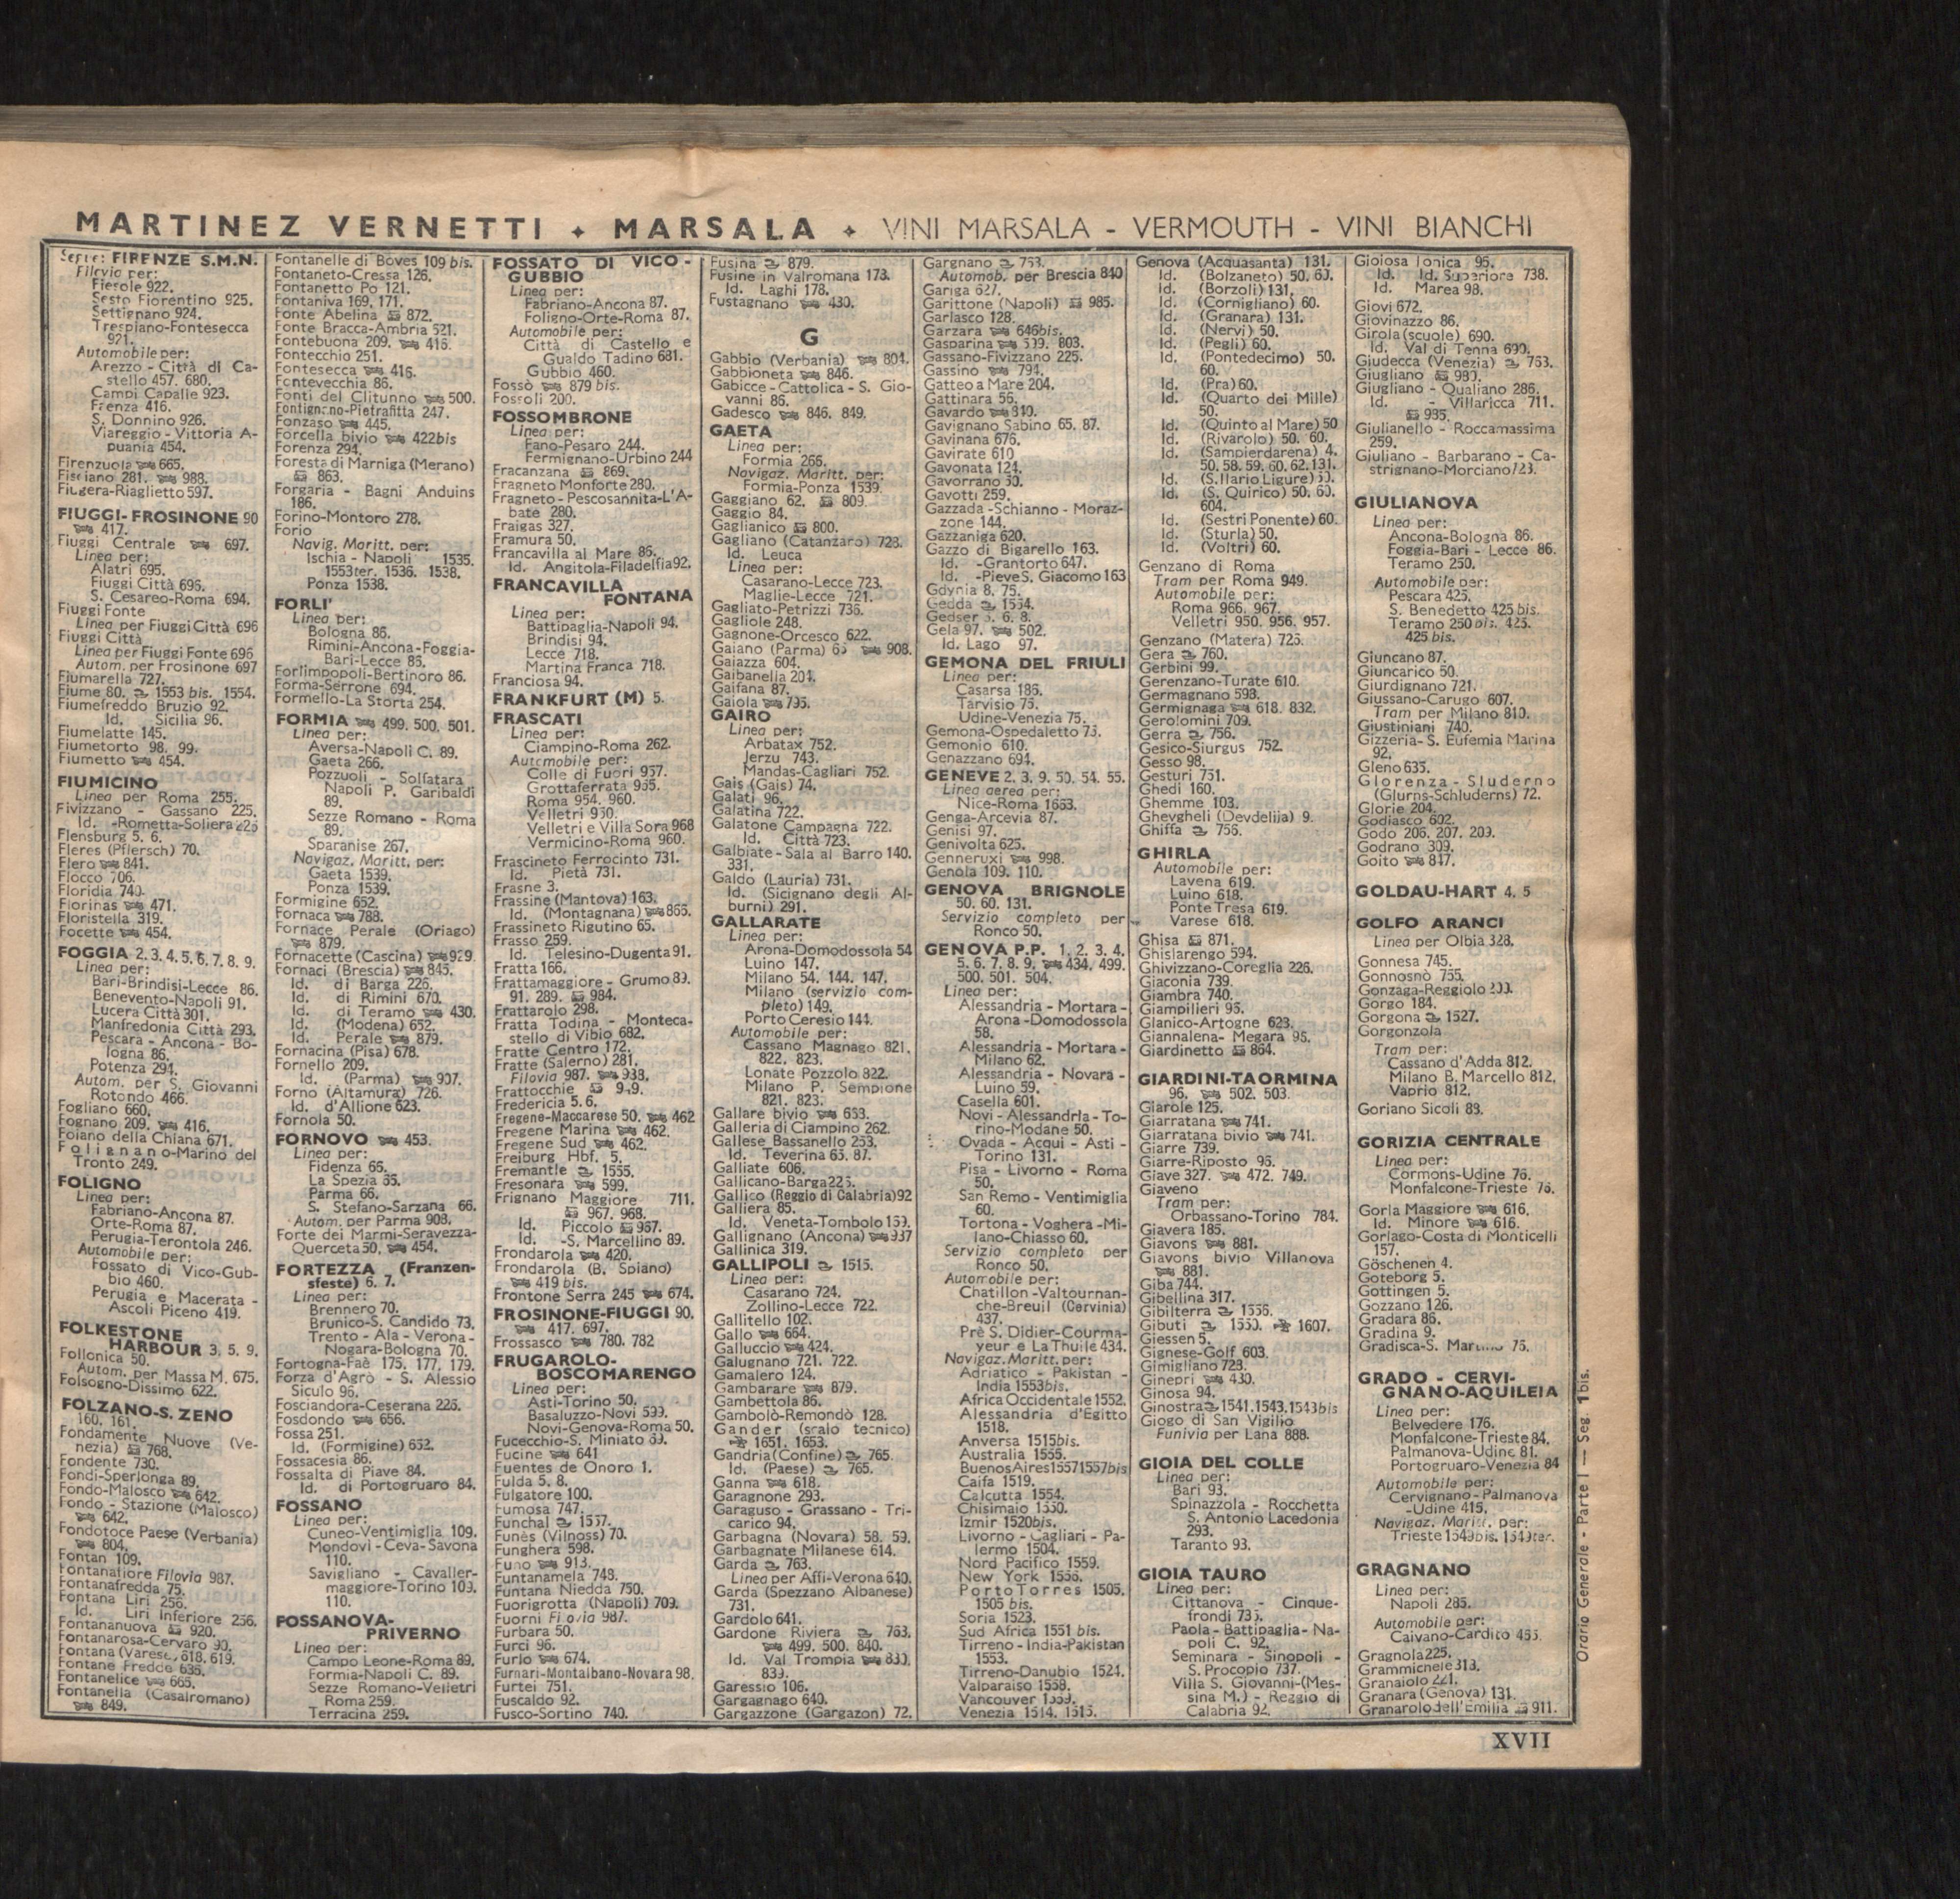 MARTINEZ VERNETTI ✦ MARSALA ✦ VINI MARSALA - VERMOUTH - VINI BIANCHI
FIRENZE S.M.N.
Filovia per:
Fiesole 922.
Sesto Fiorentino 925.
Settignano 924.
Trespiano-Fontesecca
921.
Automobile per:
Arezzo - Città di Ca-
stello 457. 680.
Campi Capalle 923.
Faenza 416.
S. Donnino 926.
Viareggio - Vittoria A-
puania 454.
Firenzuola 665.
Fisciano 281. 988.
Filgera-Riaglietto 597.
FIUGGI-FROSINONE 90
417.
Fiuggi Centrale 697.
Linea per:
Alatri 695.
Fiuggi Città 696.
S. Cesareo-Roma 694.
Fiuggi Fonte
Linea per Fiuggi Città 696
Fiuggi Città
Linea per Fiuggi Fonte 696
Autom. per Frosinone 697
Fiumarella 727.
Fiume 80. 1553 bis. 1554.
Fiumefreddo Bruzio 92.
Id. Sicilia 96.
Fiumelatte 145.
Fiumetorto 98. 99.
Fiumetto 454.
FIUMICINO
Linea per Roma 255.
Fivizzano - Gassano 225.
Id. -Rometta-Soliera 225
Flensburg 5. 6.
Fleres (Pflersch) 70.
Flero 841.
Flocco 706.
Floridia 740.
Florinas 471.
Floristella 319.
Focette 454.
FOGGIA 2. 3. 4. 5. 6. 7. 8. 9.
Linea per:
Bari-Brindisi-Lecce 86.
Benevento-Napoli 91.
Lucera Città 301.
Manfredonia Città 293.
Pescara - Ancona - Bo-
logna 86.
Potenza 294.
Autom. per S. Giovanni
Rotondo 466.
Fogliano 660.
Fognano 209. 416.
Foiano della Chiana 671.
Folignano-Marino del
Tronto 249.
FOLIGNO
Linea per:
Fabriano-Ancona 87.
Orte-Roma 87.
Perugia-Terontola 246.
Automobile per:
Fossato di Vico-Gub-
bio 460.
Perugia e Macerata -
Ascoli Piceno 419.
FOLKESTONE
HARBOUR 3. 5. 9.
Follonica 50.
Autom. per Massa M. 675.
Folsogno-Dissimo 622.
FOLZANO-S. ZENO
160. 161.
Fondamente Nuove (Ve-
nezia) 768.
Fondente 730.
Fondi-Sperlonga 89.
Fondo-Malosco 642.
Fondo - Stazione (Malosco)
642.
Fondotoce Paese (Verbania)
804.
Fontan 109.
Fontanafiore Filovia 987.
Fontanafredda 75.
Fontana Liri 256.
Id. Liri Inferiore 256.
Fontananuova 920.
Fontanarosa-Cervaro 90.
Fontana (Varese) 618. 619.
Fontane Fredde 635.
Fontanelice 665.
Fontanella (Casalromano)
849.
Fontanelle di Boves 109 bis.
Fontaneto-Cressa 126.
Fontanetto Po 121.
Fontaniva 169. 171.
Fonte Abelina 872.
Fonte Bracca-Ambria 521.
Fontebuona 209. 416.
Fontecchio 251.
Fontesecca 416.
Fontevecchia 86.
Fonti del Clitunno 500.
Fontignano-Pietrafitta 247.
Fonzaso 445.
Forcella bivio 422bis
Forenza 294.
Foresta di Marniga (Merano)
863.
Forgaria - Bagni Anduins
186.
Forino-Montoro 278.
Forio
Navig. Maritt. per:
Ischia - Napoli 1535.
1553ter. 1536. 1538.
Ponza 1538.
FORLI'
Linea per:
Bologna 86.
Rimini-Ancona-Foggia-
Bari-Lecce 86.
Forlimpopoli-Bertinoro 86.
Forma-Serrone 694.
Formello-La Storta 254.
FORMIA 499. 500. 501.
Linea per:
Aversa-Napoli C. 89.
Gaeta 266.
Pozzuoli - Solfatara
Napoli P. Garibaldi
89.
Sezze Romano - Roma
89.
Sparanise 267.
Navigaz. Maritt. per:
Gaeta 1539.
Ponza 1539.
Formigine 652.
Fornaca 788.
Fornace Perale (Oriago)
879.
Fornacette (Cascina) 929.
Fornaci (Brescia) 845.
Id. di Barga 226.
Id. di Rimini 670.
Id. di Teramo 430.
Id. (Modena) 652.
Id. Perale 879.
Fornacina (Pisa) 678.
Fornello 209.
Id. (Parma) 907.
Forno (Altamura) 726.
Id. d'Allione 623.
Fornola 50.
FORNOVO 453.
Linea per:
Fidenza 66.
La Spezia 66.
Parma 66.
S. Stefano-Sarzana 66.
Autom. per Parma 908.
Forte dei Marmi-Seravezza-
Querceta 50. 454.
FORTEZZA (Franzen-
sfeste) 6. 7.
Linea per:
Brennero 70.
Brunico-S. Candido 73.
Trento - Ala - Verona -
Nogara-Bologna 70.
Fortogna-Faè 175. 177. 179.
Forza d'Agrò - S. Alessio
Siculo 96.
Fosciandora-Ceserana 226.
Fosdondo 656.
Fossa 251.
Id. (Formigine) 652.
Fossacesia 86.
Fossalta di Piave 84.
Id. di Portogruaro 84.
FOSSANO
Linea per:
Cuneo-Ventimiglia 109.
Mondovi -Ceva-Savona
110.
Savigliano - Cavaller-
maggiore-Torino 109.
110.
FOSSANOVA-
PRIVERNO
Linea per:
Campo Leone-Roma 89.
Formia-Napoli C. 89.
Sezze Romano-Velletri
Roma 259.
Terracina 259.
FOSSATO DI VICO -
GUBBIO
Linea per:
Fabriano-Ancona 87.
Foligno-Orte-Roma 87.
Automobile per:
Città di Castello e
Gualdo Tadino 681.
Gubbio 460.
Fossò 879 bis.
Fossoli 200.
FOSSOMBRONE
Linea per:
Fano-Pesaro 244.
Fermignano-Urbino 244
Fracanzana 869.
Fragneto Monforte 280.
Fragneto - Pescosannita-L'A-
bate 280.
Fraigas 327.
Framura 50.
Francavilla al Mare 86.
Id. Angitola-Filadelfia 92.
FRANCAVILLA
FONTANA
Linea per:
Battipaglia-Napoli 94.
Brindisi 94.
Lecce 718.
Martina Franca 718.
Franciosa 94.
FRANKFURT (M) 5.
FRASCATI
Linea per:
Ciampino-Roma 262.
Automobile per:
Colle di Fuori 957.
Grottaferrata 955.
Roma 954. 960.
Velletri 950.
Velletri e Villa Sora 968
Vermicino-Roma 960.
Frascineto Ferrocinto 731.
Id. Pietà 731.
Frasne 3.
Frassine (Mantova) 163.
Id. (Montagnana) 866.
Frassineto Rigutino 65.
Frasso 259.
Id. Telesino-Dugenta 91.
Fratta 166.
Frattamaggiore - Grumo 89.
91. 289. 984.
Frattarolo 298.
Fratta Todina - Monteca-
stello di Vibio 682.
Fratte Centro 172.
Fratte (Salerno) 281.
Filovia 987. 988.
Frattocchie 949.
Fredericia 5. 6.
Fregene-Maccarese 50. 462
Fregene Marina 462.
Fregene Sud 462.
Freiburg Hbf. 5.
Fremantle 1555.
Fresonara 599.
Frignano Maggiore 711.
967. 968.
Id. Piccolo 967.
Id. -S. Marcellino 89.
Frondarola 420.
Frondarola (B. Spiano)
419 bis.
Frontone Serra 245 674.
FROSINONE-FIUGGI 90.
417. 697.
Frossasco 780. 782
FRUGAROLO-
BOSCOMARENGO
Linea per:
Asti-Torino 50.
Basaluzzo-Novi 599.
Novi-Genova-Roma 50.
Fucecchio-S. Miniato 69.
Fucine 641
Fuentes de Onoro 1.
Fulda 5. 8.
Fulgatore 100.
Fumosa 747.
Funchal 1557.
Funès (Vilnoss) 70.
Funghera 598.
Funo 913.
Funtanamela 748.
Funtana Niedda 750.
Fuorigrotta (Napoli) 709.
Fuorni Filovia 987.
Furbara 50.
Furci 96.
Furlo 674.
Furnari-Montalbano-Novara 98.
Furtei 751.
Fuscaldo 92.
Fusco-Sortino 740.
Fusina 879.
Fusine in Valromana 173.
Id. Laghi 178.
Fustagnano 430.
G
Gabbio (Verbania) 804.
Gabbioneta 846.
Gabicce-Cattolica - S. Gio-
vanni 86.
Gadesco 846. 849.
GAETA
Linea per:
Formia 266.
Navigaz. Maritt. per:
Formia-Ponza 1539.
Gaggiano 62. 809.
Gaggio 84.
Gaglianico 800.
Gagliano (Catanzaro) 728.
Id. Leuca
Linea per:
Casarano-Lecce 723.
Maglie-Lecce 721.
Gagliato-Petrizzi 736.
Gagliole 248.
Gagnone-Orcesco 622.
Gaiano (Parma) 66 908.
Gaiazza 604.
Gaibanella 204.
Gaifana 87.
Gaiola 795.
GAIRO
Linea per:
Arbatax 752.
Jerzu 743.
Mandas-Cagliari 752.
Gais (Gais) 74.
Galati 96.
Galatina 722.
Galatone Campagna 722.
Id. Città 723.
Galbiate - Sala al Barro 140.
331.
Galdo (Lauria) 731.
Id. (Sicignano degli Al-
burni) 291.
GALLARATE
Linea per:
Arona-Domodossola 54
Luino 147.
Milano 54. 144. 147.
Milano (servizio com-
pleto) 149.
Porto Ceresio 144.
Automobile per:
Cassano Magnago 821.
822. 823.
Lonate Pozzolo 822.
Milano P. Sempione
821. 823.
Gallare bivio 653.
Galleria di Ciampino 262.
Gallese Bassanello 253.
Id. Teverina 65. 87.
Galliate 606.
Gallicano-Barga 226.
Gallico (Reggio di Calabria) 92
Galliera 85.
Id. Veneta-Tombolo 169.
Gallignano (Ancona) 937
Gallinica 319.
GALLIPOLI 1515.
Linea per:
Casarano 724.
Zollino-Lecce 722.
Gallitello 102.
Gallo 664.
Galluccio 424.
Galugnano 721. 722.
Gamalero 124.
Gambarare 879.
Gambettola 86.
Gambolò-Remondò 128.
Gander (scalo tecnico)
1651. 1653.
Gandria (Confine) 765.
Id. (Paese) 765.
Ganna 618.
Garagnone 293.
Garaguso - Grassano - Tri-
carico 94.
Garbagna (Novara) 58. 59.
Garbagnate Milanese 614.
Garda 763.
Linea per Affi-Verona 640.
Garda (Spezzano Albanese)
731.
Gardolo 641.
Gardone Riviera 763.
499. 500. 840.
Id. Val Trompia 839.
839.
Garessio 106.
Gargagnago 640.
Gargazzone (Gargazon) 72.
Gargnano 763.
Automob. per Brescia 840
Gariga 627.
Garittone (Napoli) 985.
Garlasco 128.
Garzara 646bis.
Gasparina 539. 803.
Gassano-Fivizzano 225.
Gassino 794.
Gatteo a Mare 204.
Gattinara 56.
Gavardo 840.
Gavignano Sabino 65. 87.
Gavinana 676.
Gavirate 610
Gavonata 124.
Gavorrano 50.
Gavotti 259.
Gazzada - Schianno - Moraz-
zone 144.
Gazzaniga 620.
Gazzo di Bigarello 163.
Id. -Grantorto 647.
Id. -Pieve S. Giacomo 163
Gdynia 8. 75.
Gedda 1554.
Gedser 5. 6. 8.
Gela 97. 502.
Id. Lago 97.
GEMONA DEL FRIULI
Linea per:
Casarsa 186.
Tarvisio 75.
Udine-Venezia 75.
Gemona-Ospedaletto 75.
Gemonio 610.
Genazzano 694.
GENEVE 2. 3. 9. 50. 54. 55.
Linea aerea per:
Nice-Roma 1653.
Genga-Arcevia 87.
Genisi 97.
Genivolta 625.
Genneruxi 998.
Genola 109. 110.
GENOVA BRIGNOLE
50. 60. 131.
Servizio completo per
Ronco 50.
GENOVA P.P. 1. 2. 3. 4.
5. 6. 7. 8. 9. 434. 499.
500. 501. 504.
Linea per:
Alessandria - Mortara -
Arona -Domodossola
58.
Alessandria - Mortara -
Milano 62.
Alessandria - Novara -
Luino 59.
Casella 601.
Novi - Alessandria - To-
rino-Modane 50.
Ovada - Acqui - Asti -
Torino 131.
Pisa - Livorno - Roma
50.
San Remo - Ventimiglia
60.
Tortona - Voghera -Mi-
lano-Chiasso 60.
Servizio completo per
Ronco 50.
Automobile per:
Chatillon -Valtournan-
che-Breuil (Cervinia)
437.
Prè S. Didier-Courma-
yeur e La Thuile 434.
Navigaz. Maritt. per:
Adriatico - Pakistan -
India 1553bis.
Africa Occidentale 1552.
Alessandria d'Egitto
1518.
Anversa 1515bis.
Australia 1555.
Buenos Aires 1557 1557bis
Caifa 1519.
Calcutta 1554.
Chisimaio 1550.
Izmir 1520bis.
Livorno - Cagliari - Pa-
lermo 1504.
Nord Pacifico 1559.
New York 1556.
Porto Torres 1505.
1505 bis.
Soria 1523.
Sud Africa 1551 bis.
Tirreno - India-Pakistan
1553.
Tirreno-Danubio 1524.
Valparaiso 1558.
Vancouver 1559.
Venezia 1514. 1515.
Genova (Acquasanta) 131.
Id. (Bolzaneto) 50. 60.
Id. (Borzoli) 131.
Id. (Cornigliano) 60.
Id. (Granara) 131.
Id. (Nervi) 50.
Id. (Pegli) 60.
Id. (Pontedecimo) 50.
60.
Id. (Pra) 60.
Id. (Quarto dei Mille)
50.
Id. (Quinto al Mare) 50
Id. (Rivarolo) 50. 60.
Id. (Sampierdarena) 4.
50. 58. 59. 60. 62. 131.
Id. (S. Ilario Ligure) 50.
Id. (S. Quirico) 50. 60.
604.
Id. (Sestri Ponente) 60.
Id. (Sturla) 50.
Id. (Voltri) 60.
Genzano di Roma
Tram per Roma 949.
Automobile per:
Roma 966. 967.
Velletri 950. 956. 957.
Genzano (Matera) 726.
Gera 760.
Gerbini 99.
Gerenzano-Turate 610.
Germagnano 598.
Germignaga 618. 832.
Gerolomini 709.
Gerra 756.
Gesico-Siurgus 752.
Gesso 98.
Gesturi 751.
Ghedi 160.
Ghemme 103.
Ghevgheli (Devdelija) 9.
Ghiffa 756.
GHIRLA
Automobile per:
Lavena 619.
Luino 618.
Ponte Tresa 619.
Varese 618.
Ghisa 871.
Ghislarengo 594.
Ghivizzano-Coreglia 226.
Giaconia 739.
Giambra 740.
Giampilieri 96.
Glanico-Artogne 623.
Giannalena- Megara 95.
Giardinetto 864.
GIARDINI-TAORMINA
96. 502. 503.
Giarole 125.
Giarratana 741.
Giarratana bivio 741.
Giarre 739.
Giarre-Riposto 96.
Giave 327. 472. 749.
Giaveno
Tram per:
Orbassano-Torino 784.
Giavera 185.
Giavons 881.
Giavons bivio Villanova
881.
Giba 744.
Gibellina 317.
Gibilterra 1556.
Gibuti 1550. 1607.
Giessen 5.
Gignese-Golf 603.
Gimigliano 723.
Ginepri 430.
Ginosa 94.
Ginostra 1541. 1543. 1543bis
Giogo di San Vigilio
Funivia per Lana 888.
GIOIA DEL COLLE
Linea per:
Bari 93.
Spinazzola - Rocchetta
S. Antonio Lacedonia
293.
Taranto 93.
GIOIA TAURO
Linea per:
Cittanova - Cinque-
frondi 735.
Paola - Battipaglia - Na-
poli C. 92.
Seminara - Sinopoli -
S. Procopio 737.
Villa S. Giovanni-(Mes-
sina M.) - Reggio di
Calabria 92.
Gioiosa Ionica 95.
Id. Id. Superiore 738.
Id. Marea 98.
Giovi 672.
Giovinazzo 86.
Girola (scuole) 690.
Id. Val di Tenna 690.
Giudecca (Venezia) 763.
Giugliano 980.
Giugliano - Qualiano 286.
Id. - Villaricca 711.
985.
Giulianello - Roccamassima
259.
Giuliano - Barbarano - Ca-
strignano-Morciano 723.
GIULIANOVA
Linea per:
Ancona-Bologna 86.
Foggia-Bari - Lecce 86.
Teramo 250.
Automobile per:
Pescara 425.
S. Benedetto 425 bis.
Teramo 250 bis. 425.
425 bis.
Giuncano 87.
Giuncarico 50.
Giurdignano 721.
Giussano-Carugo 607.
Tram per Milano 810.
Giustiniani 740.
Gizzeria- S. Eufemia Marina
92.
Gleno 635.
Glorenza - Sluderno
(Glurns-Schluderns) 72.
Glorie 204.
Godiasco 602.
Godo 206. 207. 209.
Godrano 309.
Goito 847.
GOLDAU-HART 4. 5
GOLFO ARANCI
Linea per Olbia 328.
Gonnesa 745.
Gonnosnò 755.
Gonzaga-Reggiolo 200.
Gorgo 184.
Gorgona 1527.
Gorgonzola
Tram per:
Cassano d'Adda 812.
Milano B. Marcello 812.
Vaprio 812.
Goriano Sicoli 88.
GORIZIA CENTRALE
Linea per:
Cormons-Udine 76.
Monfalcone-Trieste 76.
Gorla Maggiore 616.
Id. Minore 616.
Gorlago-Costa di Monticelli
157.
Göschenen 4.
Goteborg 5.
Gottingen 5.
Gozzano 126.
Gradara 86.
Gradina 9.
Gradisca-S. Martino 76.
GRADO - CERVI-
GNANO-AQUILEIA
Linea per:
Belvedere 176.
Monfalcone-Trieste 84.
Palmanova-Udine 81.
Portogruaro-Venezia 84
Automobile per:
Cervignano-Palmanova
-Udine 415.
Navigaz. Maritt. per:
Trieste 1549bis. 1549ter.
GRAGNANO
Linea per:
Napoli 285.
Automobile per:
Caivano-Cardito 455.
Gragnola 225.
Grammichele 313.
Granaiolo 221.
Granara (Genova) 131.
Granarolo dell'Emilia 911.
Orario Generale - Parte I — Seg. 1 bis.
XVII